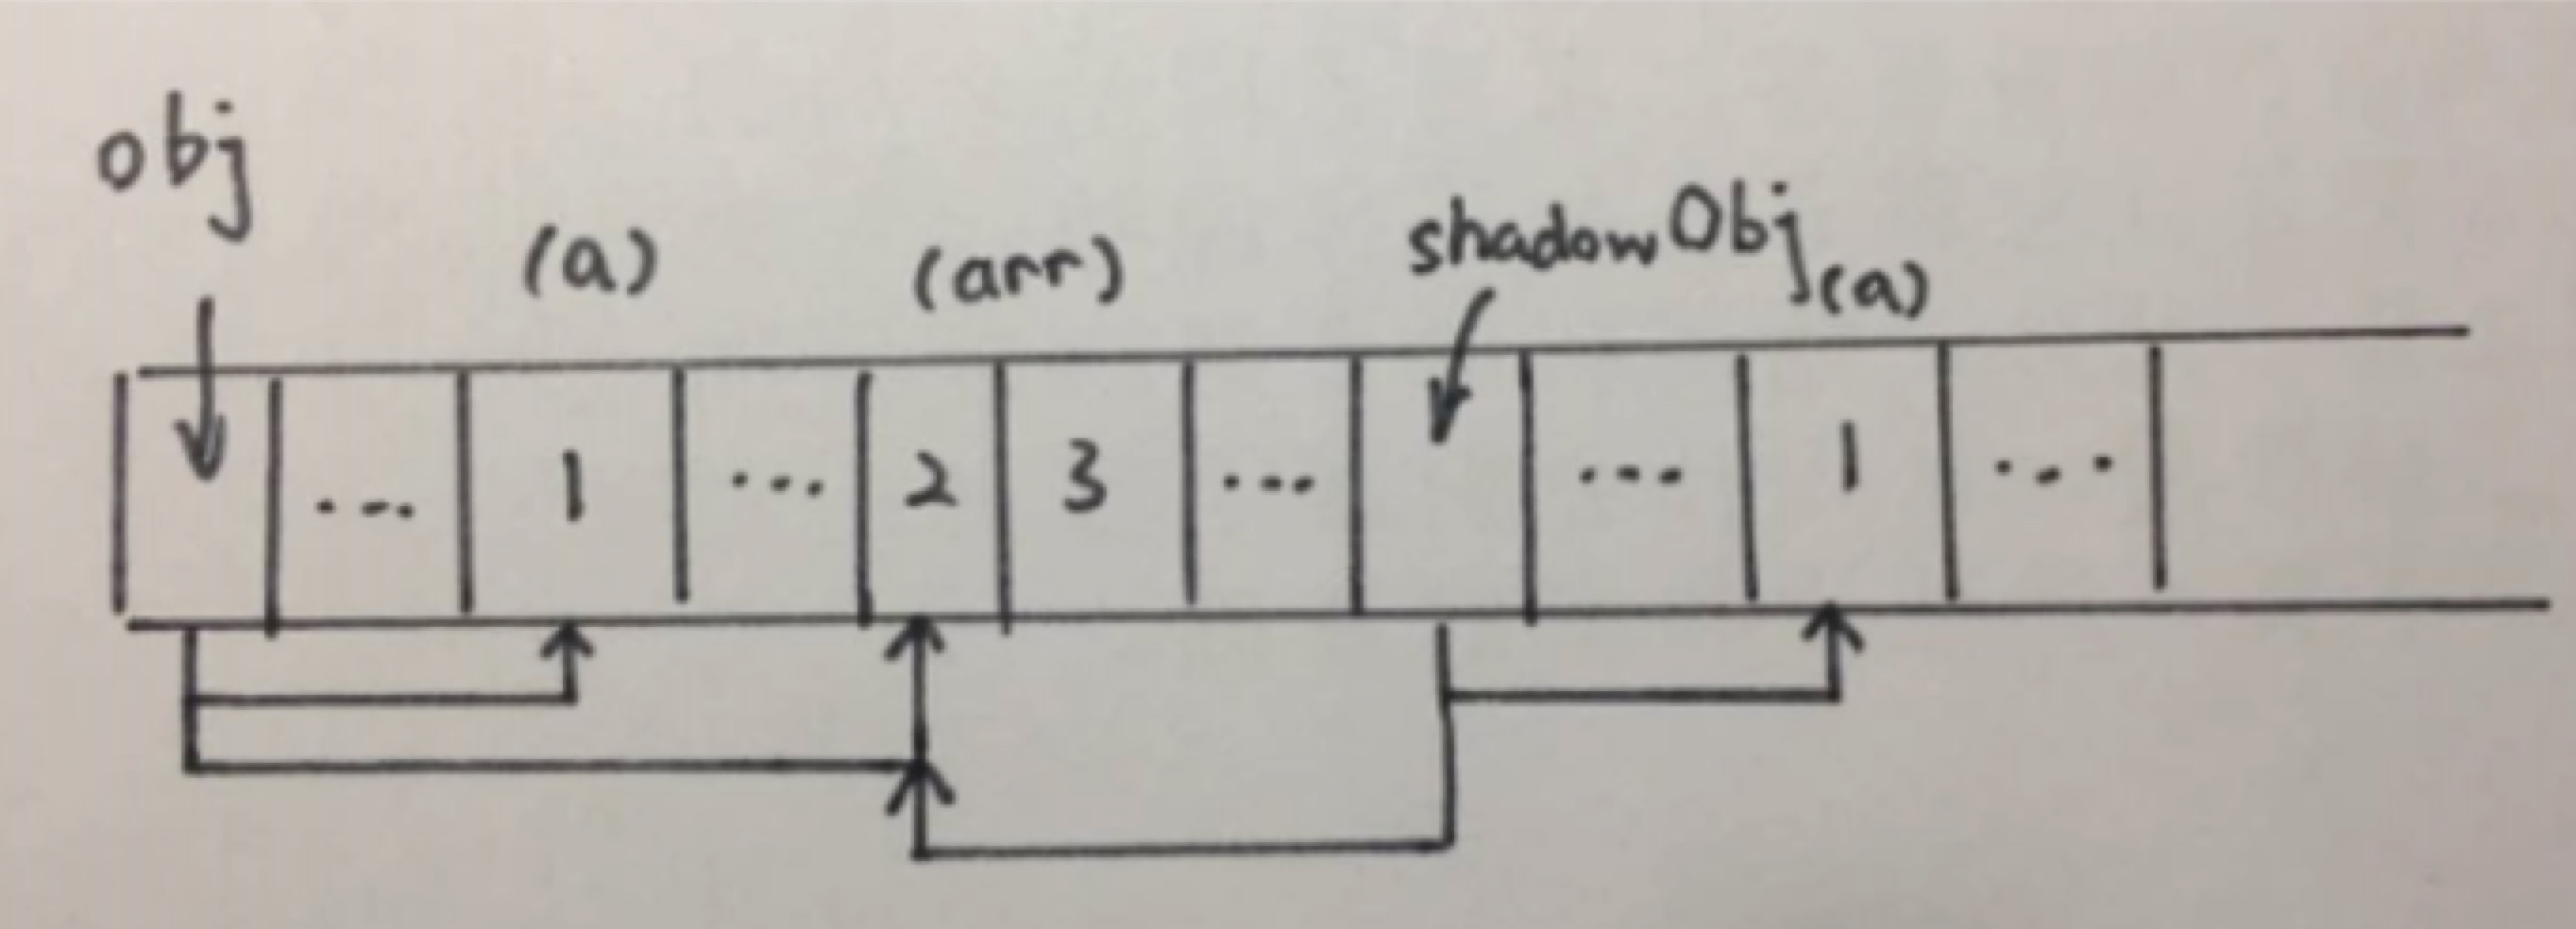 obj
(a) (arr) shadowObj (a)
... 1 ... 2 3 ... ... 1 ...